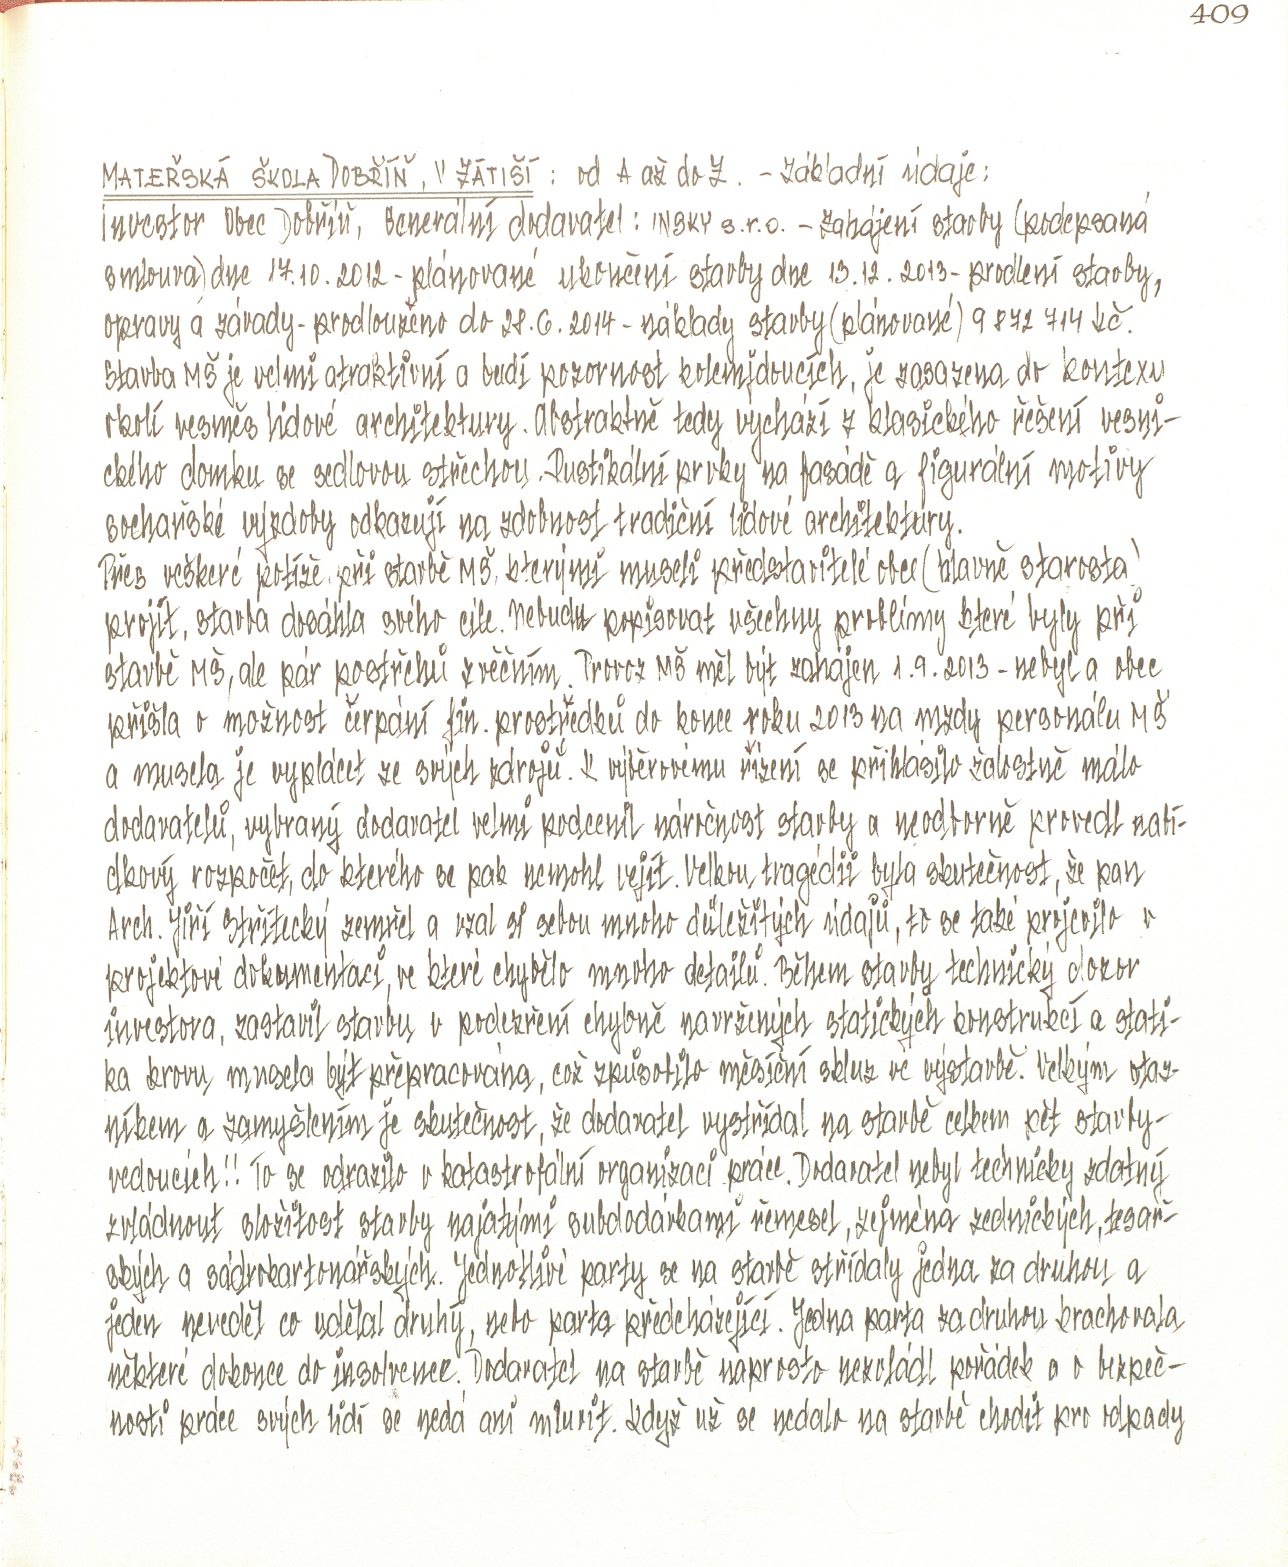 409
MATEŘSKÁ ŠKOLA DOBŘÍŇ, V ZÁTIŠÍ : od A až do Z. - Základní údaje:
Investor Obec Dobříň, Generální dodavatel : INSKY s.r.o. - Zahájení stavby (podepsaná
smlouva) dne 17.10.2012 - plánované ukončení stavby dne 13.12.2013 - prodlení stavby,
opravy a závady - prodlouženo do 28.6.2014 - náklady stavby (plánované) 9 872 714 Kč.
Stavba MŠ je velmi atraktivní a budí pozornost kolemjdoucích, je zasazena do kontexu
okolí vesměs lidové architektury. Abstraktně tedy vychází z klasického řešení vesni-
ckého domku se sedlovou střechou. Rustikální prvky na fasádě a figurální motivy
sochařské výzdoby odkazují na zdobnost tradiční lidové architektúry.
Přes veškeré potíže při stavbě MŠ, kterými museli představitelé obce (hlavně starosta)
projít, stavba dosáhla svého cíle. Nebudu popisovat všechny problémy které byly při
stavbě MŠ, ale pár postřehů zvěčním. Provoz MŠ měl být zahájen 1.9.2013 - nebyl a obec
přišla o možnost čerpání fin. prostředků do konce roku 2013 na mzdy personálu MŠ
a musela je vyplácet ze svých zdrojů. K výběrovému řízení se přihlásilo žalostně málo
dodavatelů, vybraný dodavatel velmi podcenil náročnost stavby a neodborně provedl nabí-
dkový rozpočet, do kterého se pak nemohl vejít. Velkou tragédií byla skutečnost, že pan
Arch. Jiří Střítecký zemřel a vzal si sebou mnoho důležitých údajů, to se také projevilo v
projektové dokumentaci, ve které chybělo mnoho detailů. Během stavby technický dozor
investora, zastavil stavbu v podezření chybně navržených statických konstrukcí a stati-
ka krovu musela být přepracována, což způsobilo měsíční skluz ve výstavbě. Velkým otaz-
níkem a zamyšlením je skutečnost, že dodavatel vystřídal na stavbě celkem pět stavby-
vedoucích!! To se odrazilo v katastrofální organizaci práce. Dodavatel nebyl technicky zdatný
zvládnout složitost stavby najatými subdodávkami řemesel, zejména zednických, tesař-
ských a sádrokartonářských. Jednotlivé party se na stavbě střídaly jedna za druhou a
jeden nevěděl co udělal druhý, nebo parta předcházející. Jedna parta za druhou krachovala
některé dokonce do insolvence. Dodavatel na stavbě naprosto nezvládl pořádek a o bezpeč-
nosti práce svých lidí se nedá ani mluvit. Když už se nedalo na stavbě chodit pro odpady